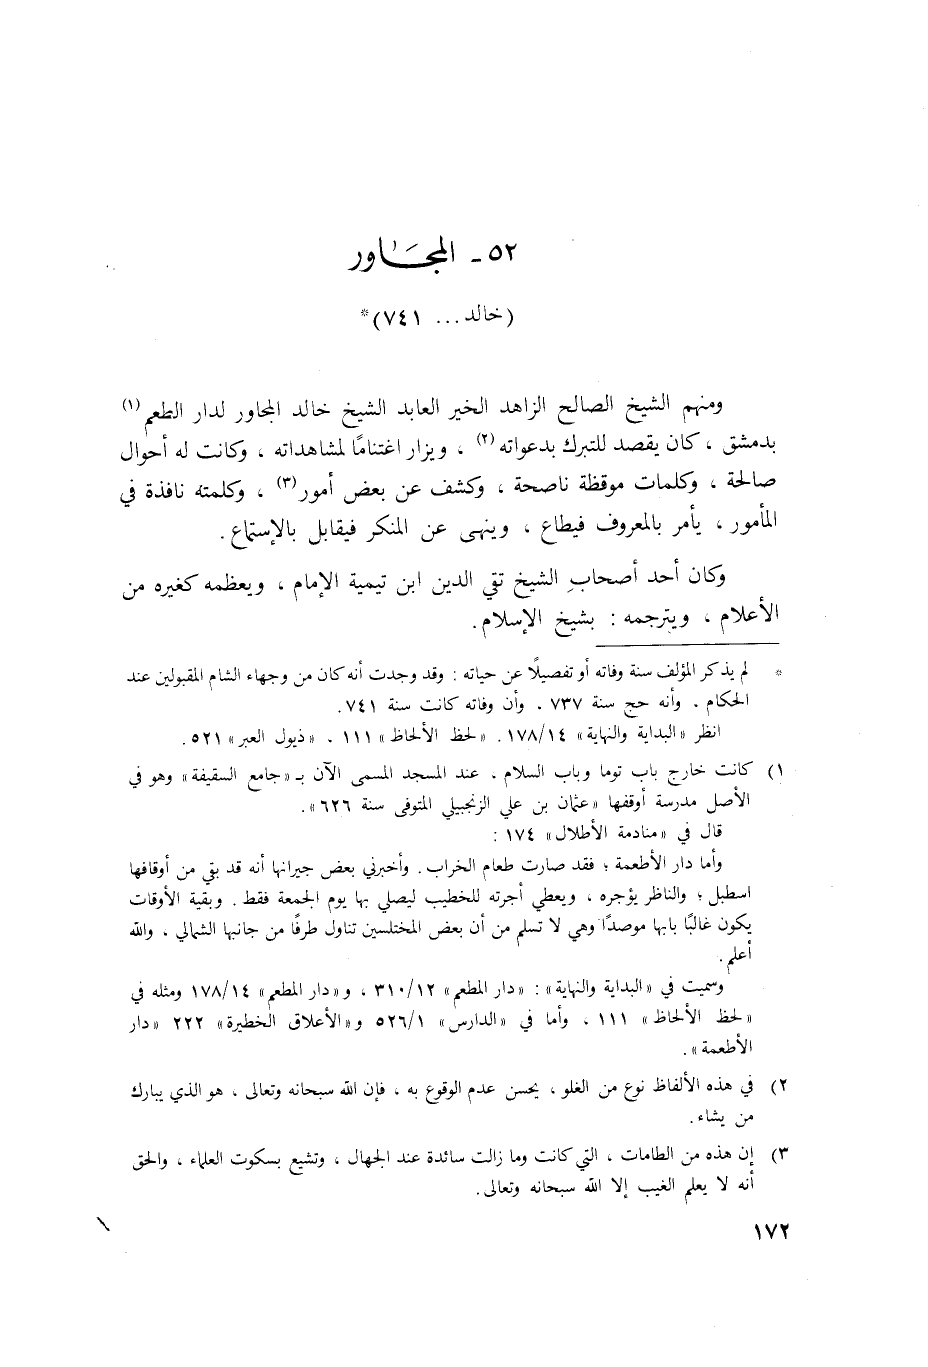 ٥٢ - المجَاور
(خالد ... ٧٤١)*
ومنهم الشيخ الصالح الزاهد الخير العابد الشيخ خالد المجاور لدار الطعم (١)
بدمشق ، كان يقصد للتبرك بدعواته (٢) ، ويزار اغتنامًا لمشاهداته ، وكانت له أحوال
صالحة ، وكلمات موقظة ناصحة ، وكشف عن بعض أمور (٣) ، وكلمته نافذة في
المأمور ، يأمر بالمعروف فيطاع ، وينهى عن المنكر فيقابل بالإستماع .
وكان أحد أصحابِ الشيخ تقي الدين ابن تيمية الإمام ، ويعظمه كغيره من
الأعلام ، ويترجمه : بشيخ الإسلام .
* لم يذكر المؤلف سنة وفاته أو تفصيلًا عن حياته : وقد وجدت أنه كان من وجهاء الشام المقبولين عند
الحكام . وأنه حج سنة ٧٣٧ . وأن وفاته كانت سنة ٧٤١ .
انظر «البداية والنهاية» ١٧٨/١٤ . «لحظ الألحاظ» ١١١ . «ذيول العبر» ٥٢١ .
١) كانت خارج باب توما وباب السلام . عند المسجد المسمى الآن بـ «جامع السقيفة» وهو في
الأصل مدرسة أوقفها «عثمان بن علي الزنجبيلي المتوفى سنة ٦٢٦» .
قال في «منادمة الأطلال» ١٧٤ :
وأما دار الأطعمة ؛ فقد صارت طعام الخراب . وأخبرني بعض جيرانها أنه قد بقي من أوقافها
اسطبل ؛ والناظر يؤجره ، ويعطي أجرته للخطيب ليصلي بها يوم الجمعة فقط . وبقية الأوقات
يكون غالبًا بابها موصدًا وهي لا تسلم من أن بعض المختلسين تناول طرفًا من جانبها الشمالي . والله
أعلم .
وسميت في «البداية والنهاية» : «دار المطعم» ٣١٠/١٢ . و«دار المطعم» ١٧٨/١٤ ومثله في
«لحظ الألحاظ» ١١١ . وأما في «الدارس» ٥٢٦/١ و«الأعلاق الخطيرة» ٢٢٢ «دار
الأطعمة» .
٢) في هذه الألفاظ نوع من الغلو ، يحسن عدم الوقوع به ، فإن الله سبحانه وتعالى ، هو الذي يبارك
من يشاء .
٣) إن هذه من الطامات ، التي كانت وما زالت سائدة عند الجهال ، وتشيع بسكوت العلماء ، والحق
أنه لا يعلم الغيب إلا الله سبحانه وتعالى .
١٧٢